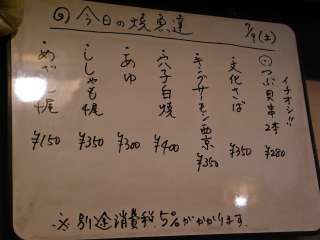 今日の焼魚達
7/9(土)
イチオシ!!
つぶ貝串2本 ¥280
文化さば ¥350
キングサーモン西京 ¥350
穴子白焼 ¥400
あゆ ¥300
ししゃも2尾 ¥350
めざし2尾 ¥150
※別途消費税5%がかかります